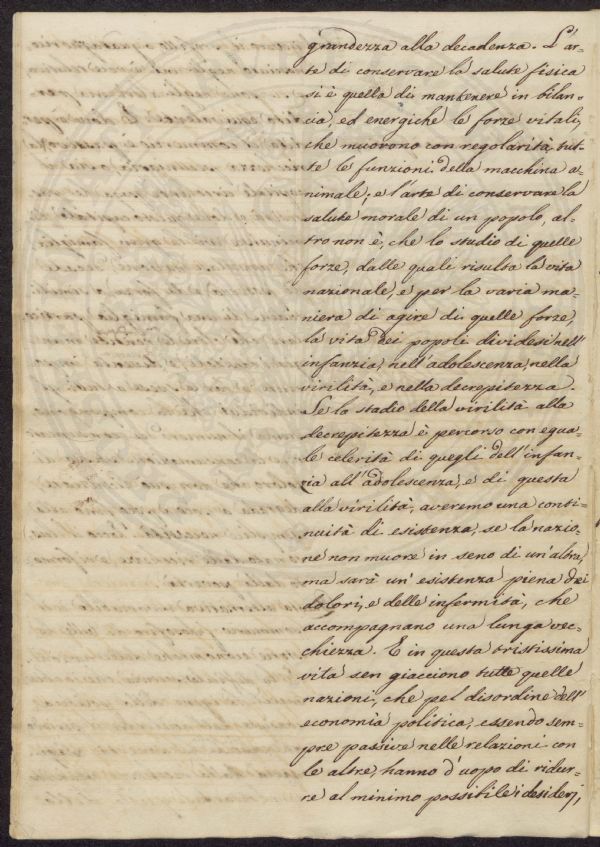 grandezza alla decadenza. L'ar-
te di conservare la salute fisica
si è quella di mantenere in bilan-
cia, ed energiche le forze vitali,
che muovono con regolarità tut-
te le funzioni della macchina a-
nimale, e l'arte di conservare la
salute morale di un popolo, al-
tro non è, che lo studio di quelle
forze, dalle quali risulta la vita
nazionale, e per la varia ma-
niera di agire di quelle forze,
la vita dei popoli dividesi nell'
infanzia, nell'adolescenza, nella
virilità, e nella decrepitezza.
Se lo stadio della virilità alla
decrepitezza è percorso con egua-
le celerità di quegli dell'infan-
zia all'adolescenza, e di questa
alla virilità, averemo una conti-
nuità di esistenza, se la nazio-
ne non muore in seno di un'altra,
ma sarà un'esistenza piena dei
dolori, e delle infermità, che
accompagnano una lunga vec-
chiezza. E in questa tristissima
vita sen giacciono tutte quelle
nazioni, che pel disordine dell'
economia politica, essendo sem-
pre passive nelle relazioni con
le altre, hanno d'uopo di ridur-
re al minimo possibile i desiderj,